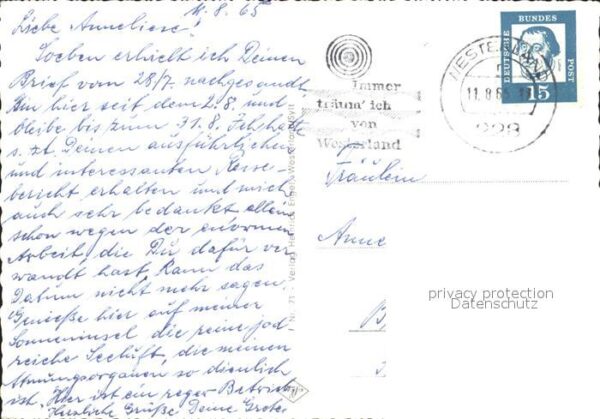 11.8.65
Liebe Anneliese!
Soeben erhielt ich Deinen
Brief vom 28/7. nachgesandt.
Bin hier seit dem 2.8. und
bleibe bis zum 31.8. Ich hatte
s. Zt. Deinen ausführlichen
und interessanten Messe-
bericht erhalten und mich
auch sehr bedankt allein
schon wegen der enormen
Arbeit, die Du dafür ver
wandt hast. Kann das
Datum nicht mehr sagen.
Genieße hier auf meiner
Sonneninsel die reine jod-
reiche Seeluft, die meinen
Atmungsorganen so dienlich
ist. Hier ist ein reger Betrieb.
Herzliche Grüße Deine Grete
Verlag Engel, Westerland/Sylt
Immer
träum' ich
von
Westerland
WESTERLAND
11.8.65
DEUTSCHE BUNDES POST
15
Fräulein
Anne
B
privacy protection
Datenschutz